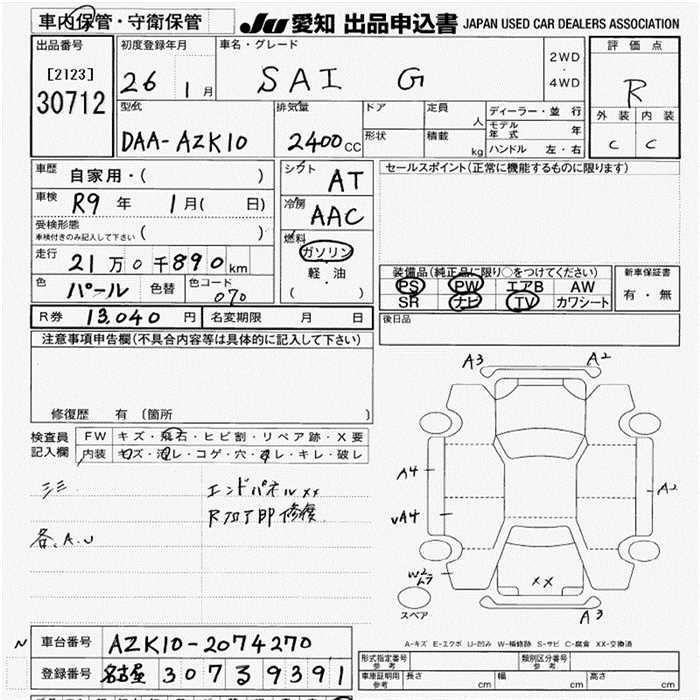 車内保管・守衛保管 JU 愛知 出品申込書 JAPAN USED CAR DEALERS ASSOCIATION
出品番号 初度登録年月 車名・グレード 評価点
[2123] 26 1月 SAI G 2WD・4WD R
30712 型式 排気量 ドア 定員 人 ディーラー・並行 外装 内装
DAA-AZK10 2400cc 形状 積載 kg モデル年式 年 C C
ハンドル 左・右
車歴 自家用・( ) シフト AT セールスポイント(正常に機能するものに限ります)
車検 R9年 1月( 日) 冷房 AAC
受検形態 ( )
車検付きのみ記入して下さい
燃料 ガソリン
走行 21万0千890km 軽・油 装備品(純正品に限り○をつけてください) 新車保証書
色 パール 色替 色コード 070 ( ・ ) PS PW エアB AW 有・無
SR ナビ TV カワシート
R券 13,040円 名変期限 月 日 後日品
注意事項申告欄(不具合内容等は具体的に記入して下さい)
修復歴 有 (箇所 )
A3 A2
検査員 FW キズ・飛石・ヒビ割・リペア跡・X要
記入欄 内装 キズ・汚レ・コゲ・穴・オレ・キレ・破レ
エンドパネルXX
修復
A4 A2
各.A.U
A4
W2
XX
スペア A3
A-キズ E-エクボ U-凹み W-補修跡 S-サビ C-腐食 XX-交換済
N 車台番号 AZK10-2074270
登録番号 名古屋 307 39391
型式指定番号 参考 類別区分番号 参考
車庫証明用 参考 長さ cm 幅 cm 高さ cm